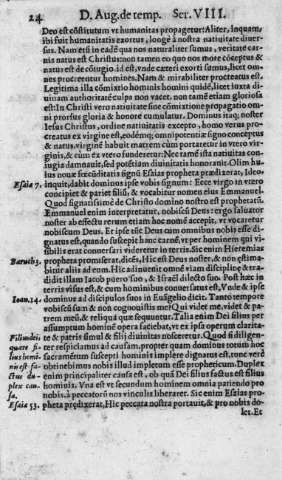 24 D. Aug. de temp. Ser. VIII.
Deo est cōstitutum vt humanitas propagetur. Aliter, inquam,
ibi fuit humanitatis exortus, longè à nostra natiuitate diuer-
sus. Nam etsi in eadē qua nos naturaliter sumus, veritate car-
nis natus est Christus: non tamen eo quo nos more cōceptus &
natus est de cōiugio id est, vnde cæteri exorti sumus, licet om-
nes procreentur homines. Nam & mirabiliter procreatus est.
Legitima illa cōmixtio hominis homini quidē, licet iuxta di-
uinam authoritatē culpa non vacet. non tamē etiam gloriosa
est: In Christi vero natiuitate sine cōmixtione propagatio om-
ni prorsus gloria & honore cumulatur. Dominus itaq; noster
Iesus Christus, ordine natiuitatis excepto, homo verus pro-
creatus ex virgine est, eodémq; omnipotentiæ signo conceptus
& natus, virginē habuit matrem cùm portaretur in vtero vir-
ginis, & cùm ex vtero funderetur: Nec tamē ista natiuitas con-
iugia damnauit, sed potestatem diuinitatis honorauit. Olim hu-
ius nouæ fœcunditatis signū Esaias propheta prædixerat, Ideo
Esaia 7. inquit, dabit dominus ipse vobis signum: Ecce virgo in vtero
concipiet & pariet filiū, & vocabitur nomen eius Emmanuel.
Quod signatissimè de Christo domino nostro est prophetatū.
Emmanuel enim interpretatur, nobiscū Deus: ergo saluator
noster ab effectu rerum etiam hoc nomē accepit, vt vocaretur
nobiscum Deus. Et ipse tūc Deus cum omnibus nobis esse di-
gnatus est, quando suscepit hunc carnē, vt per hominem qui vi-
sibilis erat conuersari videretur in terris. Sic enim Hieremias
Baruch 3. propheta promiserat, dicēs, Hic est Deus noster, & non æstima-
bitur alius ad eum. Hic adinuenit omnē viam disciplinæ & tra-
didit illam Iacob puero suo, & Israël dilecto suo. Post hæc in
terris visus est, & cum hominibus conuersatus est, Vnde & ipse
Ioan. 14. dominus ad discipulos suos in Euāgelio dicit. Tanto tempore
vobiscū sum & non cognouistis me? Qui videt me. videt & pa-
trem meū, & reliqua quæ sequuntur. Talia enim Dei filius per
assumptum hominē opera faciebat, vt ex ipsis operum clarita-
te & patris simul & filij diuinitas nosceretur. Quod si diligen-
ter respiciamus ad causam, propter quam dominus totum hoc
sacramētum suscepti hominis implere dignatus est, tunc verè
obtinebimus nobis illud impletum esse prophericum. Duplex
enim principaliter causa est, ob quā Dei filius factus est filius
hominis. Vna est vt secundum hominem omnia patiendo pro
nobis, à peccatorū nos vinculis liberaret. Sic enim Esaias pro-
Esaia 53. pheta prędixerat, Hic peccata nostra portauit, & pro nobis do-
let. Et